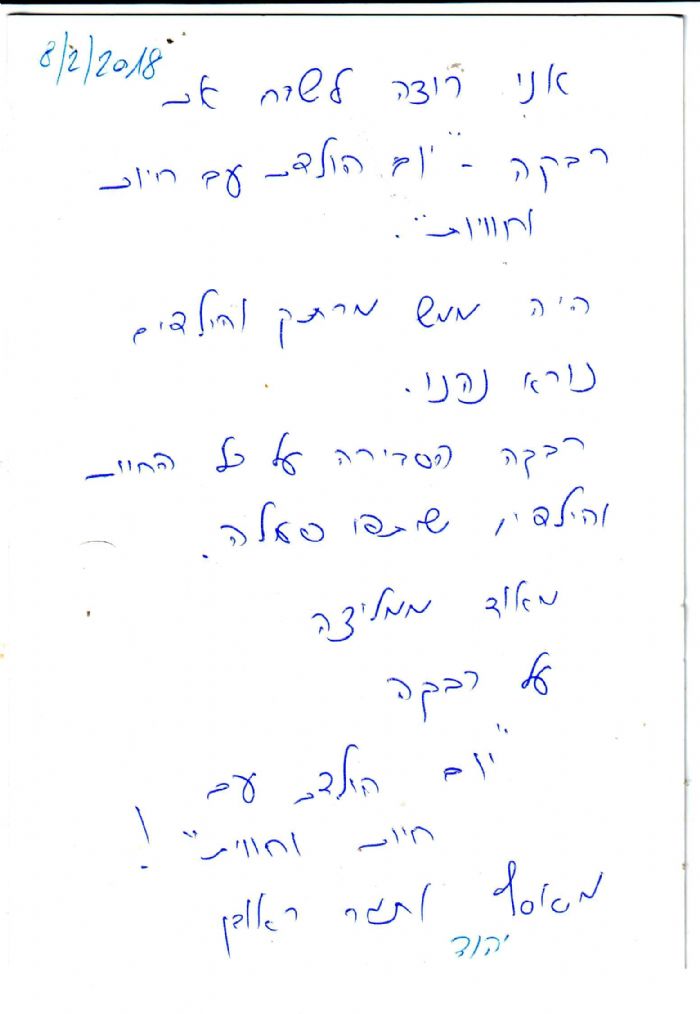 8/2/2018
אני רוצה לשבח את
רבקה - "יום הולדת עם חיות
וחוויות".
היה ממש מרתק והילדים
נורא נהנו.
רבקה הסבירה על כל החיות
והילדים שיתפו פעולה.
מאוד ממליצה
על רבקה
"יום הולדת עם
חיות וחווית"!
מאסף ותמר ראובן
יהוד